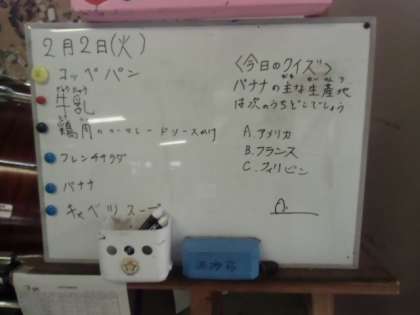 2月2日(火)
コッペパン
ぎゅうにゅう
牛乳
鶏肉のマーマレードソースかけ
フレンチサラダ
バナナ
キャベツスープ
<今日のクイズ>
バナナの主な生産地
は次のうちどこでしょう
A.アメリカ
B.フランス
C.フィリピン
A.